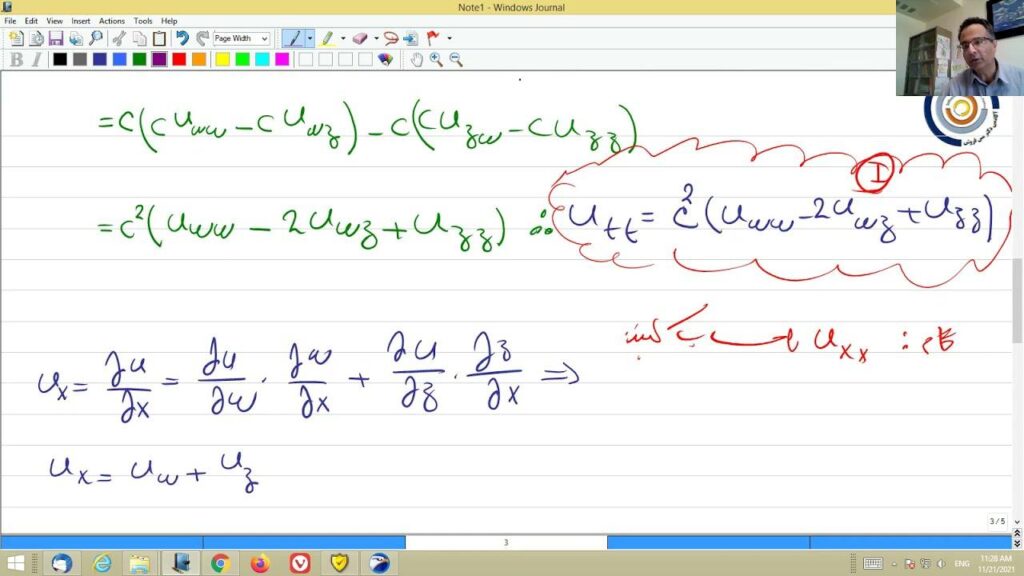 Note1 - Windows Journal
File Edit View Insert Actions Tools Help
Page Width
B I
= c(c u_ww - c u_wz) - c(c u_zw - c u_zz)
I
= c²(u_ww - 2u_wz + u_zz) ∴ u_tt = c²(u_ww - 2u_wz + u_zz)
: u_xx
u_x = ∂u/∂x = ∂u/∂w . ∂w/∂x + ∂u/∂z . ∂z/∂x ⇒
u_x = u_w + u_z
3 / 5
3
ENG
11:28 AM
11/21/2021